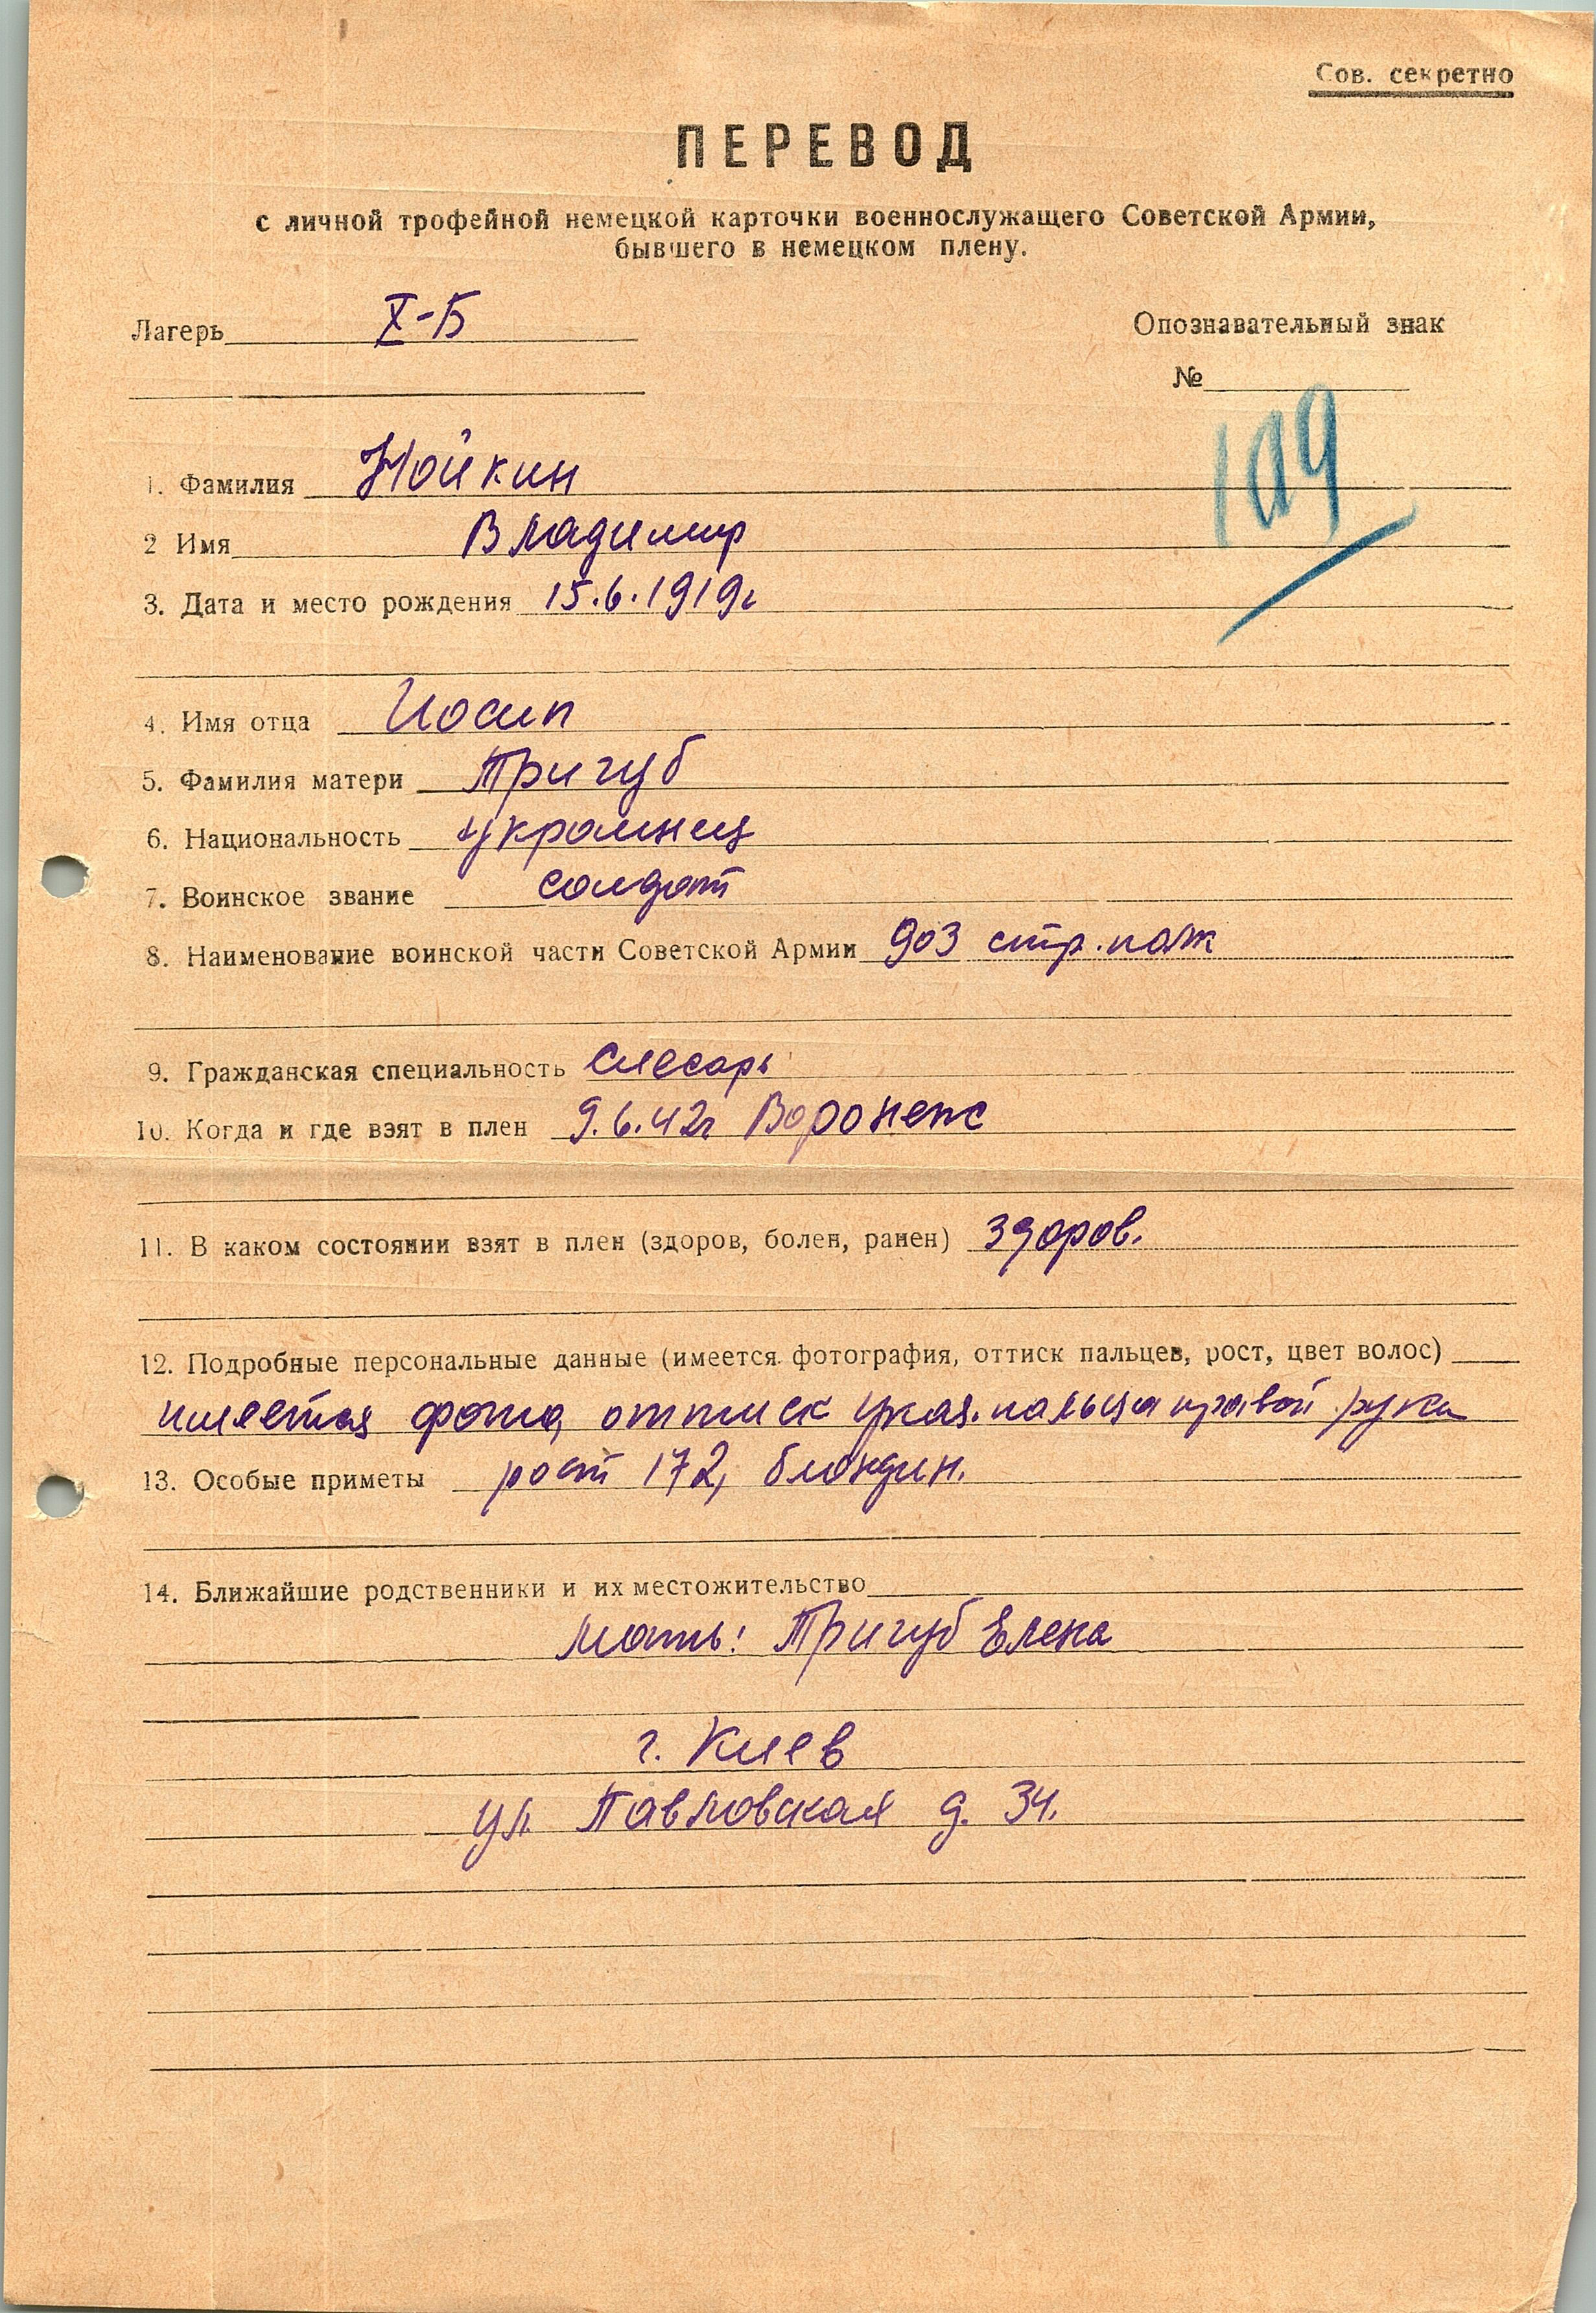 Сов. секретно
ПЕРЕВОД
с личной трофейной немецкой карточки военнослужащего Советской Армии,
бывшего в немецком плену.
Лагерь X-Б
Опознавательный знак
№
109
1. Фамилия Нойкин
2 Имя Владимир
3. Дата и место рождения 15.6.1919г
4. Имя отца Иосип
5. Фамилия матери Тригуб
6. Национальность украинец
7. Воинское звание солдат
8. Наименование воинской части Советской Армии 903 стр. полк
9. Гражданская специальность Слесарь
10. Когда и где взят в плен 9.6.42г Воронеж
11. В каком состоянии взят в плен (здоров, болен, ранен) здоров.
12. Подробные персональные данные (имеется фотография, оттиск пальцев, рост, цвет волос)
имеется фото, оттиск указ. пальца правой руки
13. Особые приметы рост 172, блондин.
14. Ближайшие родственники и их местожительство
Мать: Тригуб Елена
г. Киев
ул. Павловская д. 34.